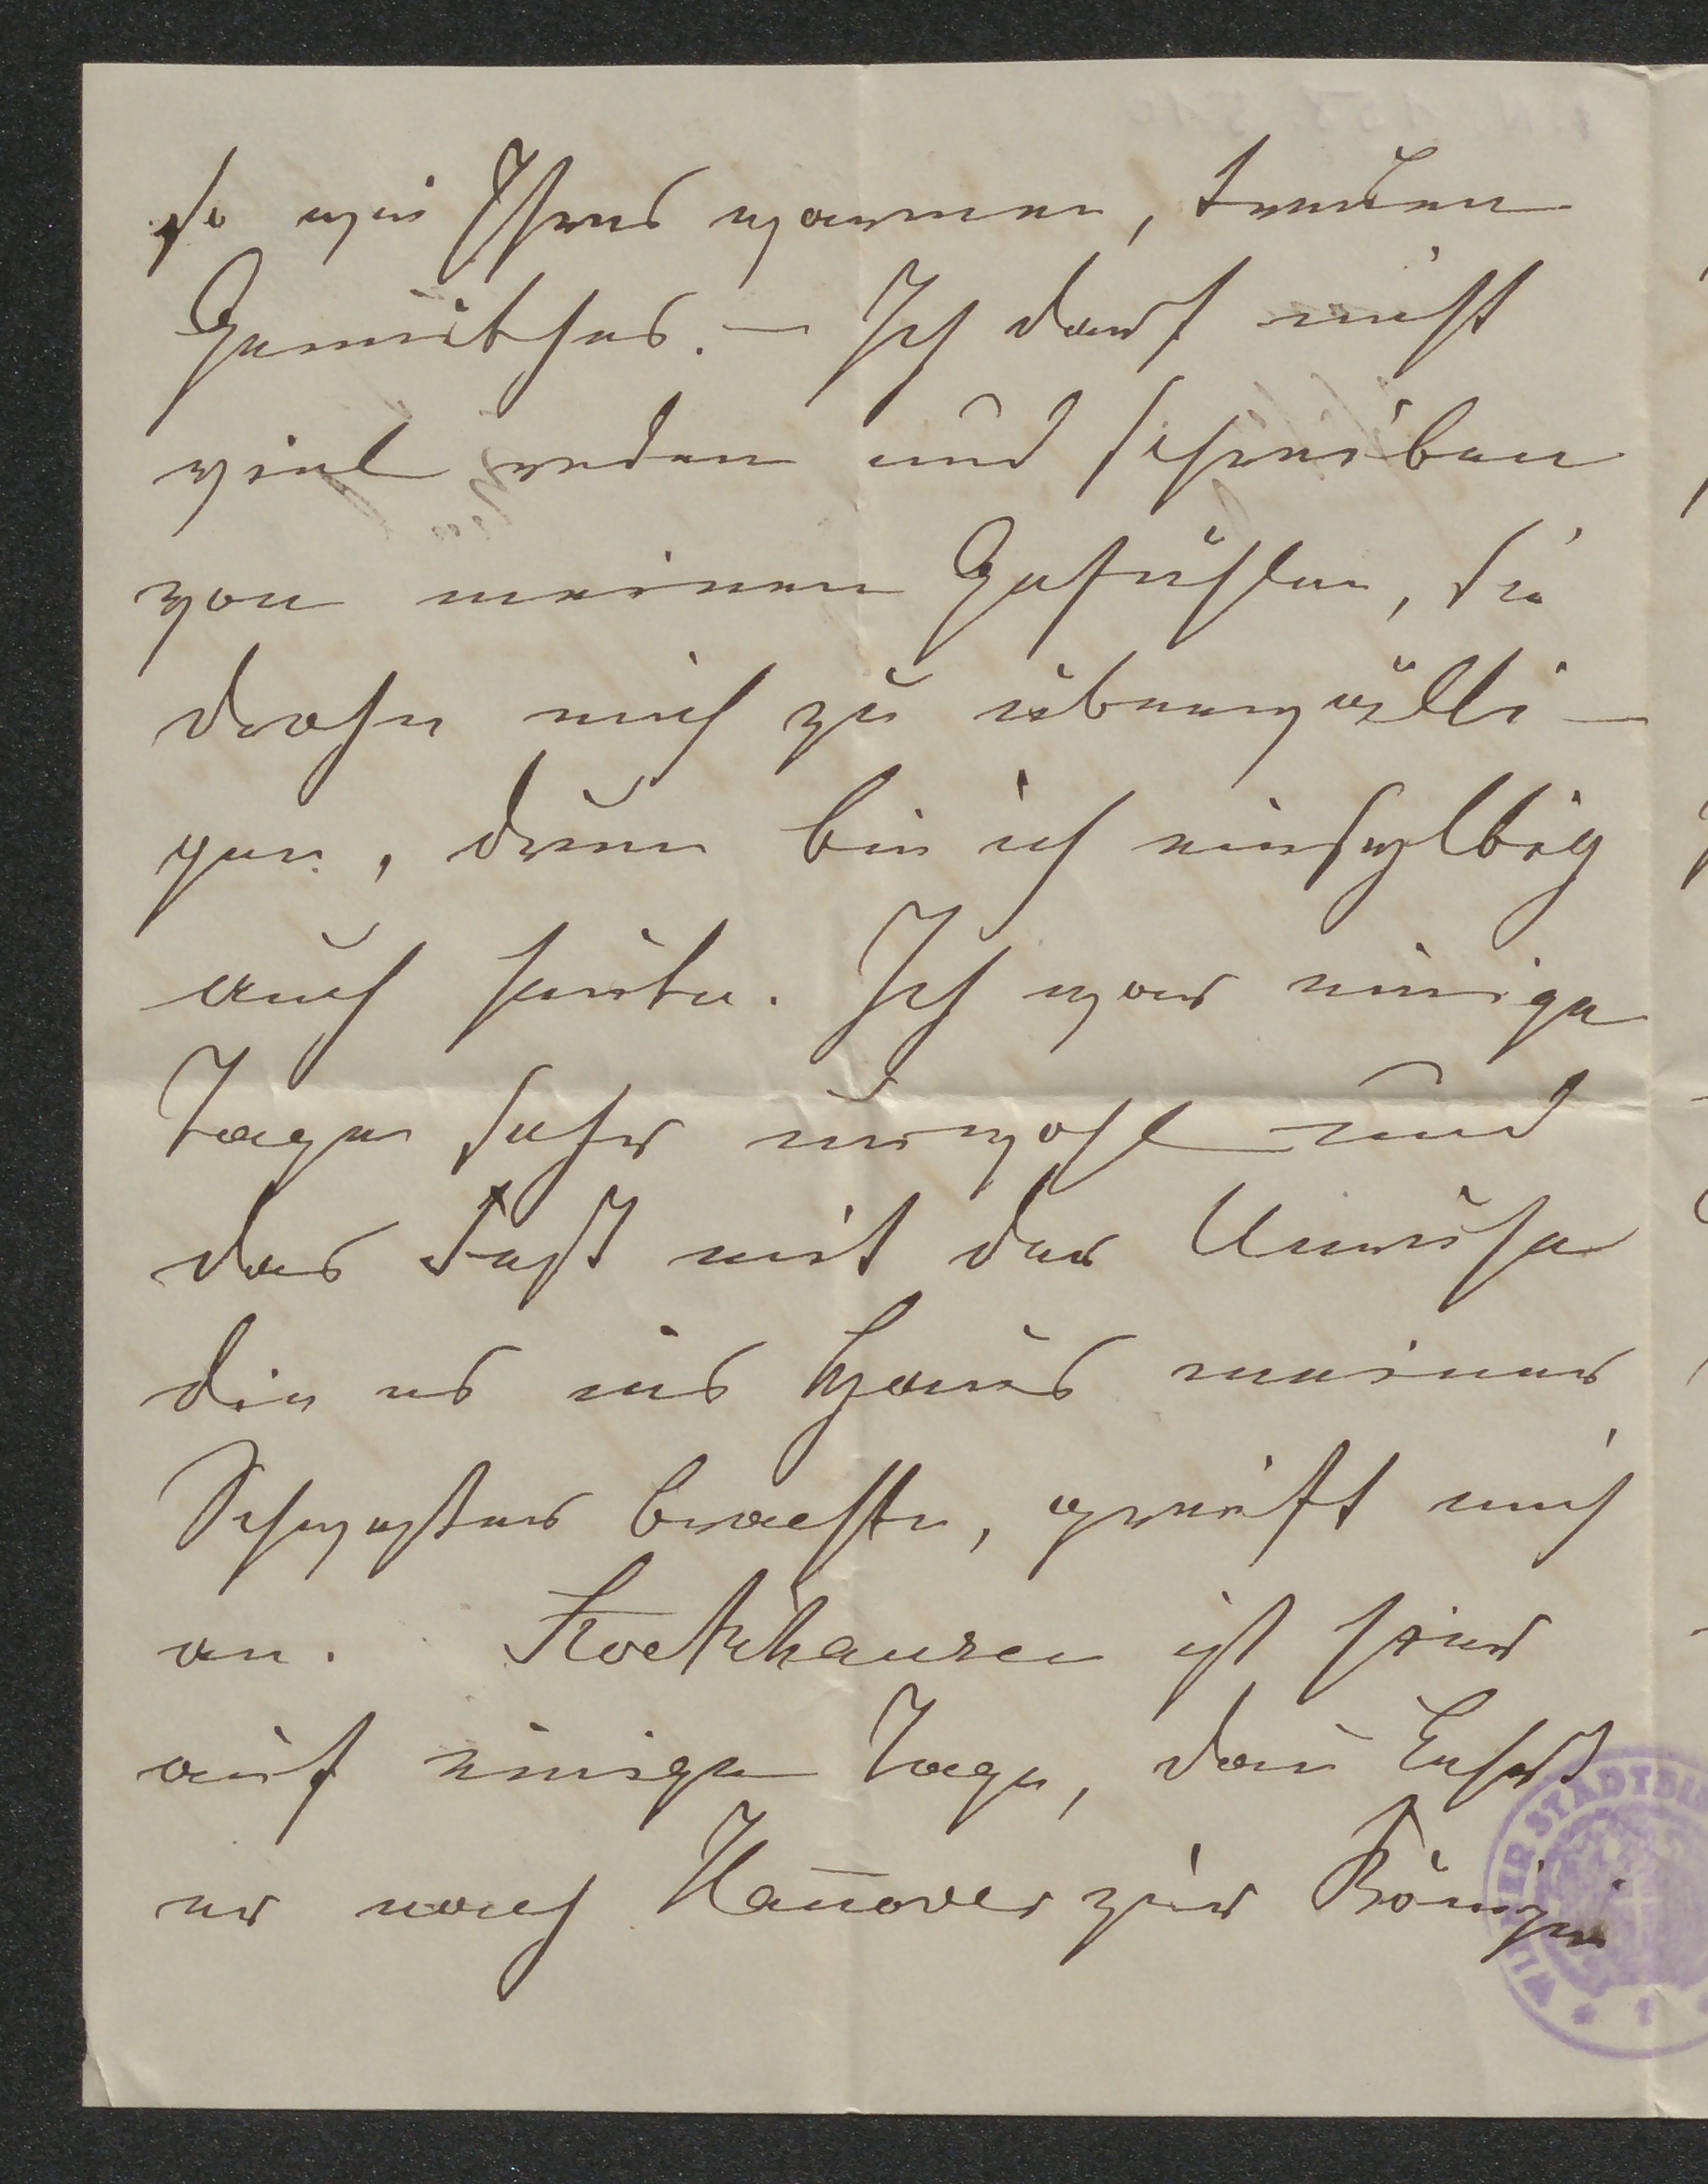 so wie Ihres warmen, treuen
Gemüthes. – Ich darf nicht
viel reden und schreiben
von meinen Gefühlen, sie
drohn mich zu überwälti–
gen, drum bin ich einsylbig
auch heute. Ich war einige
Tage sehr unwohl und
das Fest mit der Unruhe
die es ins Haus meiner
Schwester brachte, greift mich
an. Stockhausen ist hier
auf einige Tage, dañ kehrt
er nach Hañover zur Königin
WIENER STADTBI